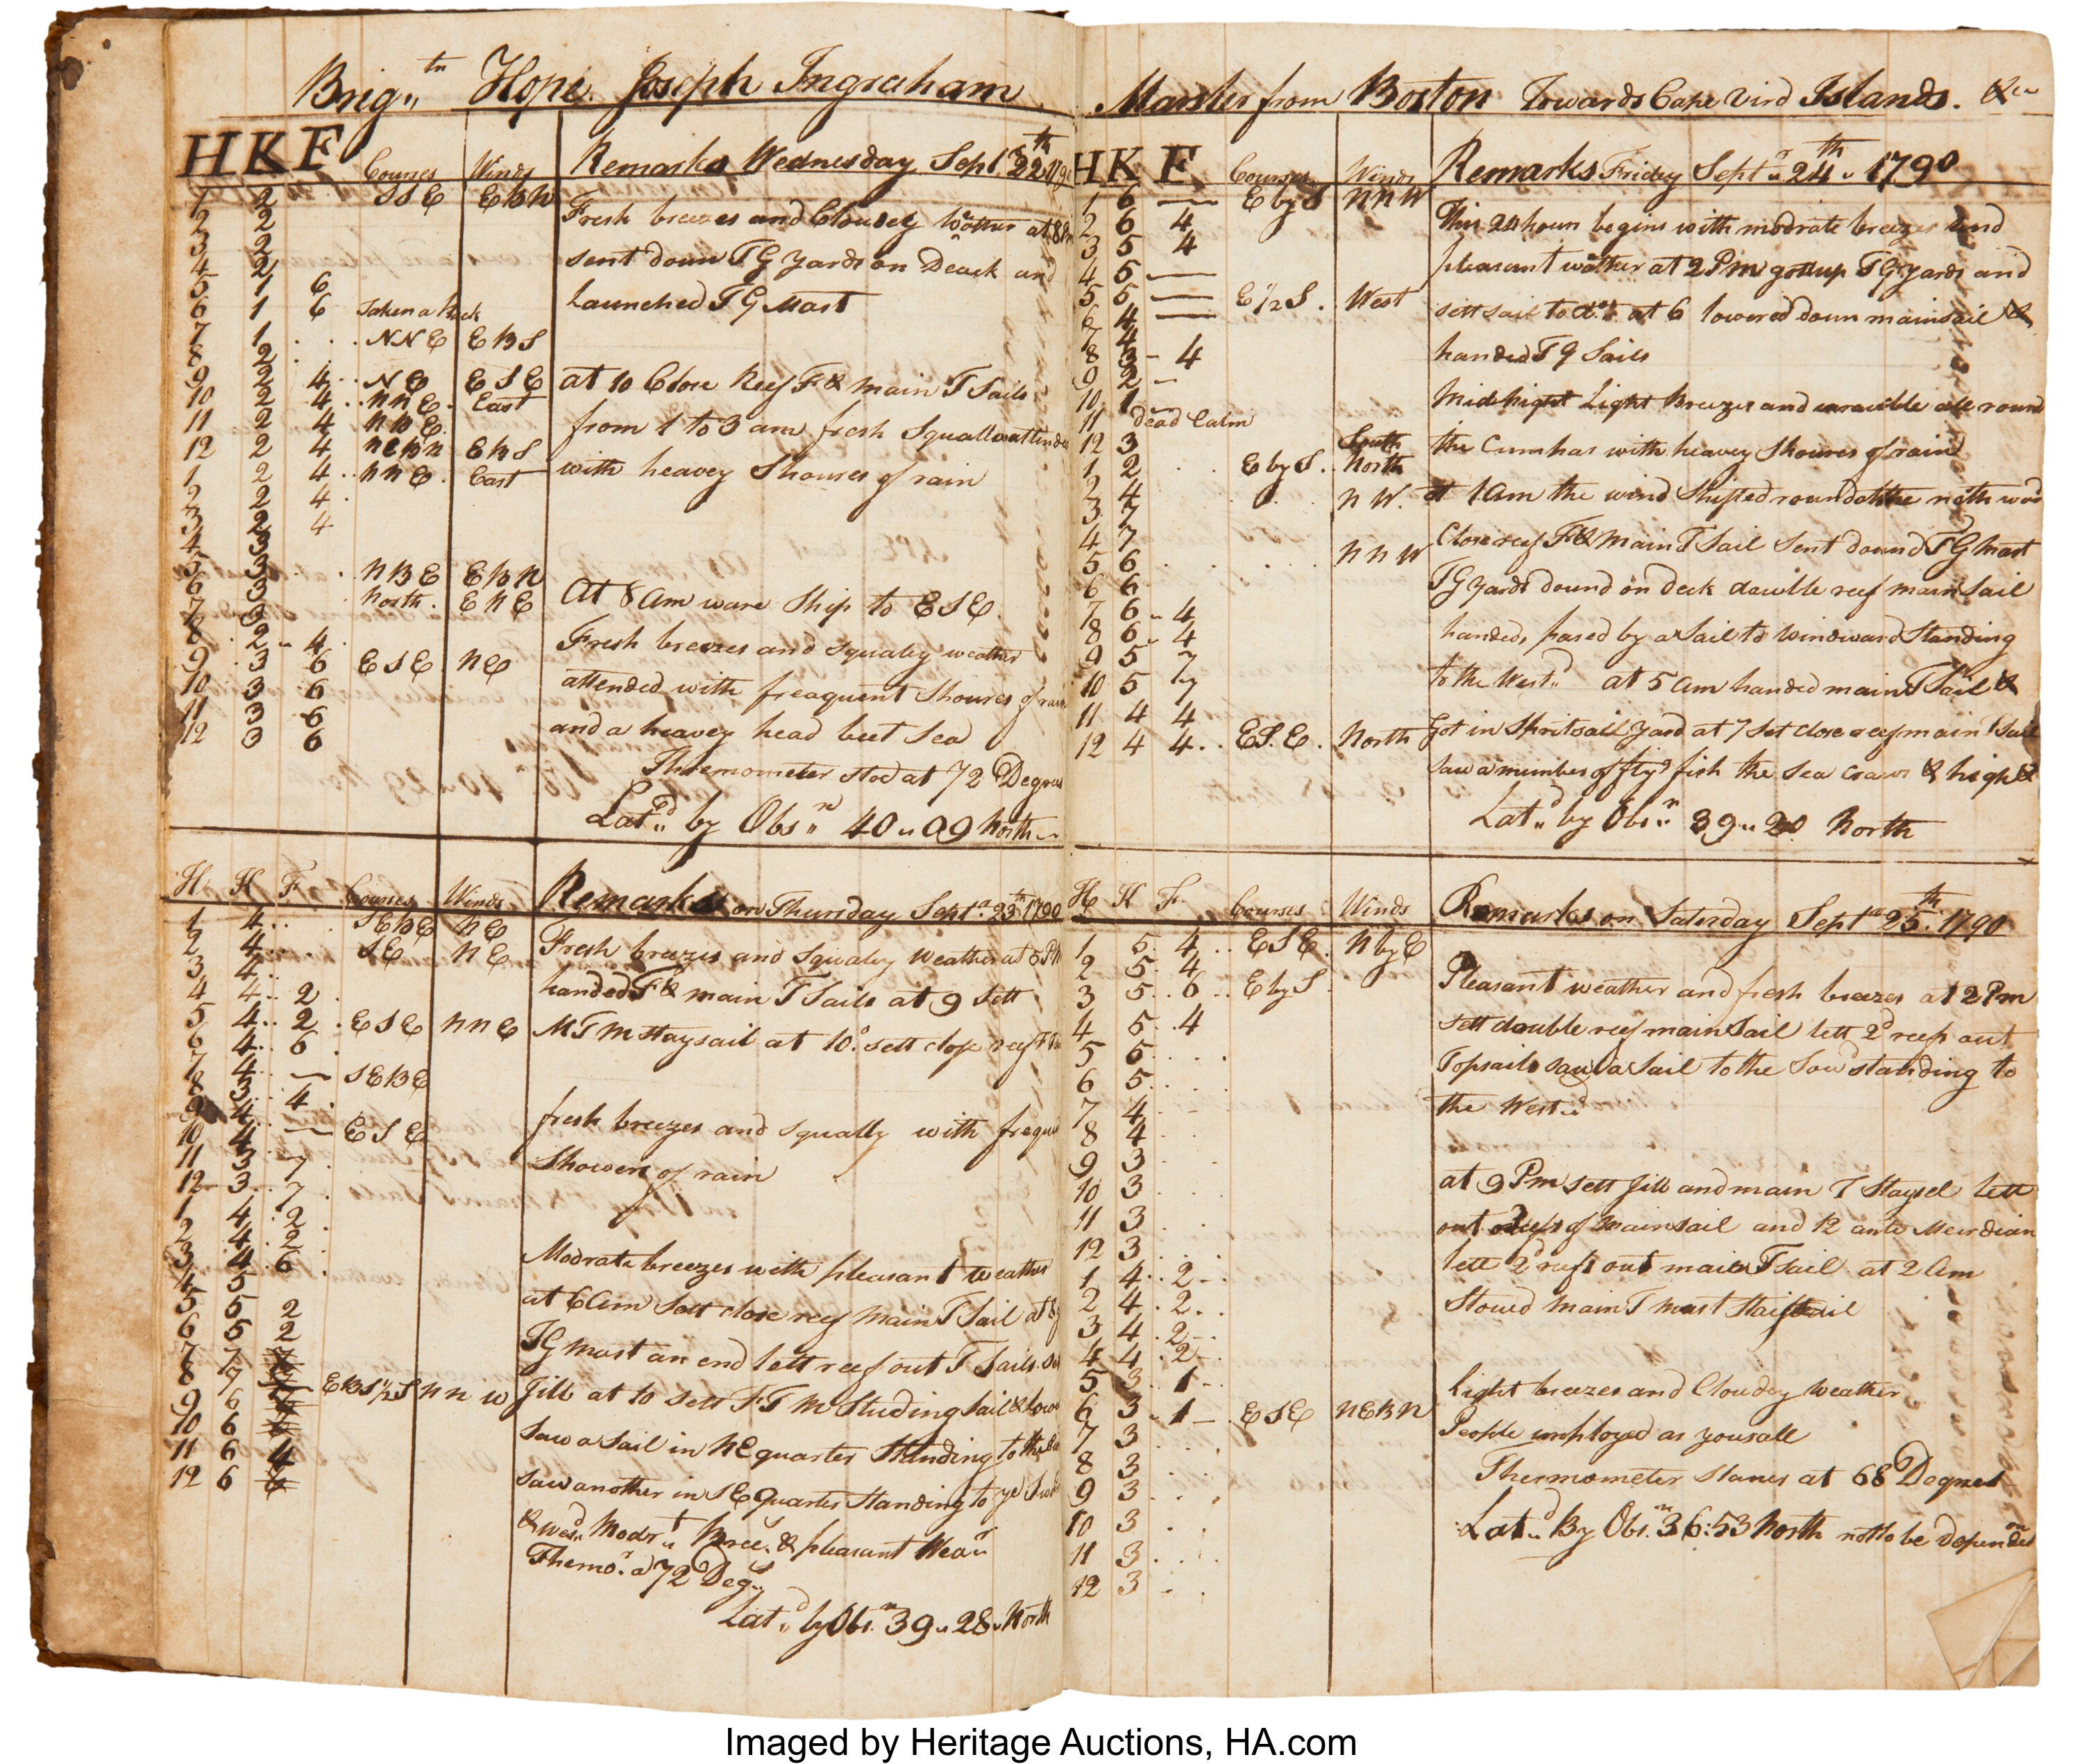 Brig.tn Hope. Joseph Ingraham
H K F Courses Winds Remarks Wednesday Sept. 22th 179
1 2 SSE EBN
2 2 Fresh breezes and Cloudey Wather at 8 Pm
3 2 sent down TG yards on Deack and
4 2 Launched TG Mast
5 1 6
6 1 6 Taken a Back
7 1 NNE EBS
8 2
9 2 4 NE ESE at 10 Close Reef F & main T Sails
10 2 4 NNE. East
11 2 4 NBE. from 1 to 3 am fresh Squalls attended
12 2 4 NEBN EBS
1 2 4 NNE. East with heavey Shoures of rain
2 2 4
3 2 4
4 3
5 3 NBE EBN
6 3 North. ENE At 8 am ware Ship to ESE.
7 3
8 2 4 Fresh breezes and squaley weather
9 3 6 ESE NE attended with freaquent Shoures of rain
10 3 6
11 3 6 and a heavey head beet Sea
12 3 6
Thremometer stod at 72 Degrees
Latd by Obsn 40 09 North
H K F Courses Winds Remarks on Thursday Sept. 23th 1790
1 4 SEBE NE
2 4 SE NE Fresh breezes and squaley weather at 5 PM
3 4
4 4 2 handed F & main T Sails at 9 Sett
5 4 2 ESE NNE M T M staysail at 10. sett close reef
6 4 6
7 4 — SEBE
8 3 4
9 4
10 4 — ESE fresh breezes and squally with frequ
11 3 7 Showers of rain
12 3 7
1 4 2
2 4 2
3 4 6 Modrate breezes with pleasant weather
4 5
5 5 2 at 6 am Sett close reef main T Sail at 8
6 5 2
7 7 TG mast an end lett reef out T Sails.
8 7 — EBS1/2S NNW Jibb at 10 sett F T M Studing Sail & low
9 6
10 6 Saw a Sail in NE quarter Standing to the
11 6 4
12 6 saw another in SE quarter Standing to ye
& Wesd Modrt Bree. & pleasant Wear
Themo. a 72 Deg.
Latd by Obsn 39 28 North
Master from Boston Towards Cape Vird Islands. &c
H K F Courses Winds Remarks Friday Sept 24th 1790
1 6 — E by S NNW
2 6 4 This 24 hours begins with modrate breezes and
3 5 4 pleasant wather at 2 Pm gott up TG yards and
4 5 —
5 5 — E 1/2 S. West sett sail to do. at 6 lowered down mainsail &
6 4 —
7 4
8 3 4 handed TG Sails
9 2 —
10 1 Midnight Light Breezes and all round
11 Dead Calm
12 3 South the Cumhas with heavey Shoures of rain
1 2 E by S. North
2 4 NW. at 1 am the wind Shifted round
3 7
4 7 Close reef F & Main T Sail Sent dound TG Mast
5 6 NNW
6 6 TG yards dound on deck dauble reef mainSail
7 6 4
8 6 4 handed, pased by a Sail to Windward Standing
9 5 7
10 5 7 to the Westd at 5 am handed main T Sail &
11 4 4
12 4 4 ES.E. North Got in Spritsail Yard at 7 set close reef main T Sail
Saw a number of flyg fish the Sea & high
Latd by Obsn 39 20 North
H K F. Courses Winds Remarks on Saterday Sept 25th. 1790
1 5 4 ESE. N by E
2 5 4 Pleasant weather and fresh breezes at 2 Pm
3 5 6 E by S
4 5 4 sett double reef mainSail lett 2d reef out
5 5
6 5 Topsails saw a Sail to the Sowd standing to
7 4 the Westd
8 4
9 3
10 3 at 9 Pm sett Jibb and main T Staysel lett
11 3 out reefs of Mainsail and 12 ante Meirdian
12 3
1 4 2 lett 2 reefs out main T sail at 2 am
2 4 2 Stowed main T mast Staisail
3 4 2
4 4 2
5 3 1 Light breezes and Cloudey Weather
6 3 1 ESE NEBN
7 3 People imployed as yousall
8 3 Thermometer Stanes at 68 Degrees
9 3
10 3 Latd By Obsn 36:53 North not to be
11 3
12 3
Imaged by Heritage Auctions, HA.com